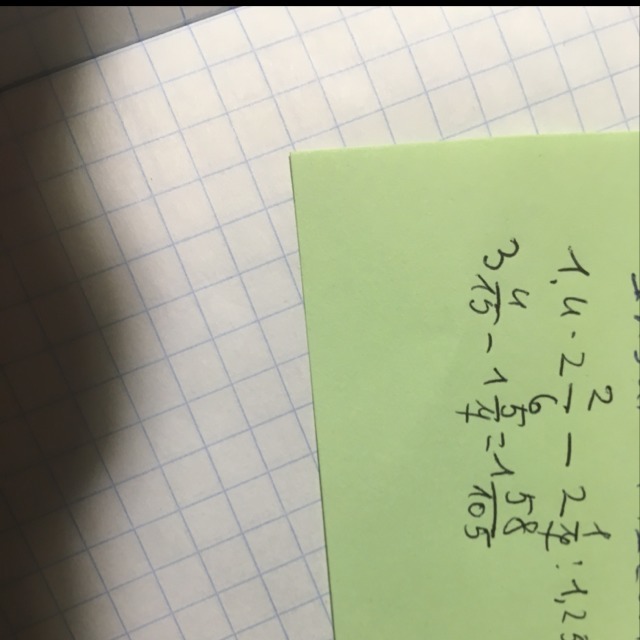 1.4 · 2 2/6 — 2 1/7 : 1.2
3 4/15 - 1 5/7 = 1 58/105